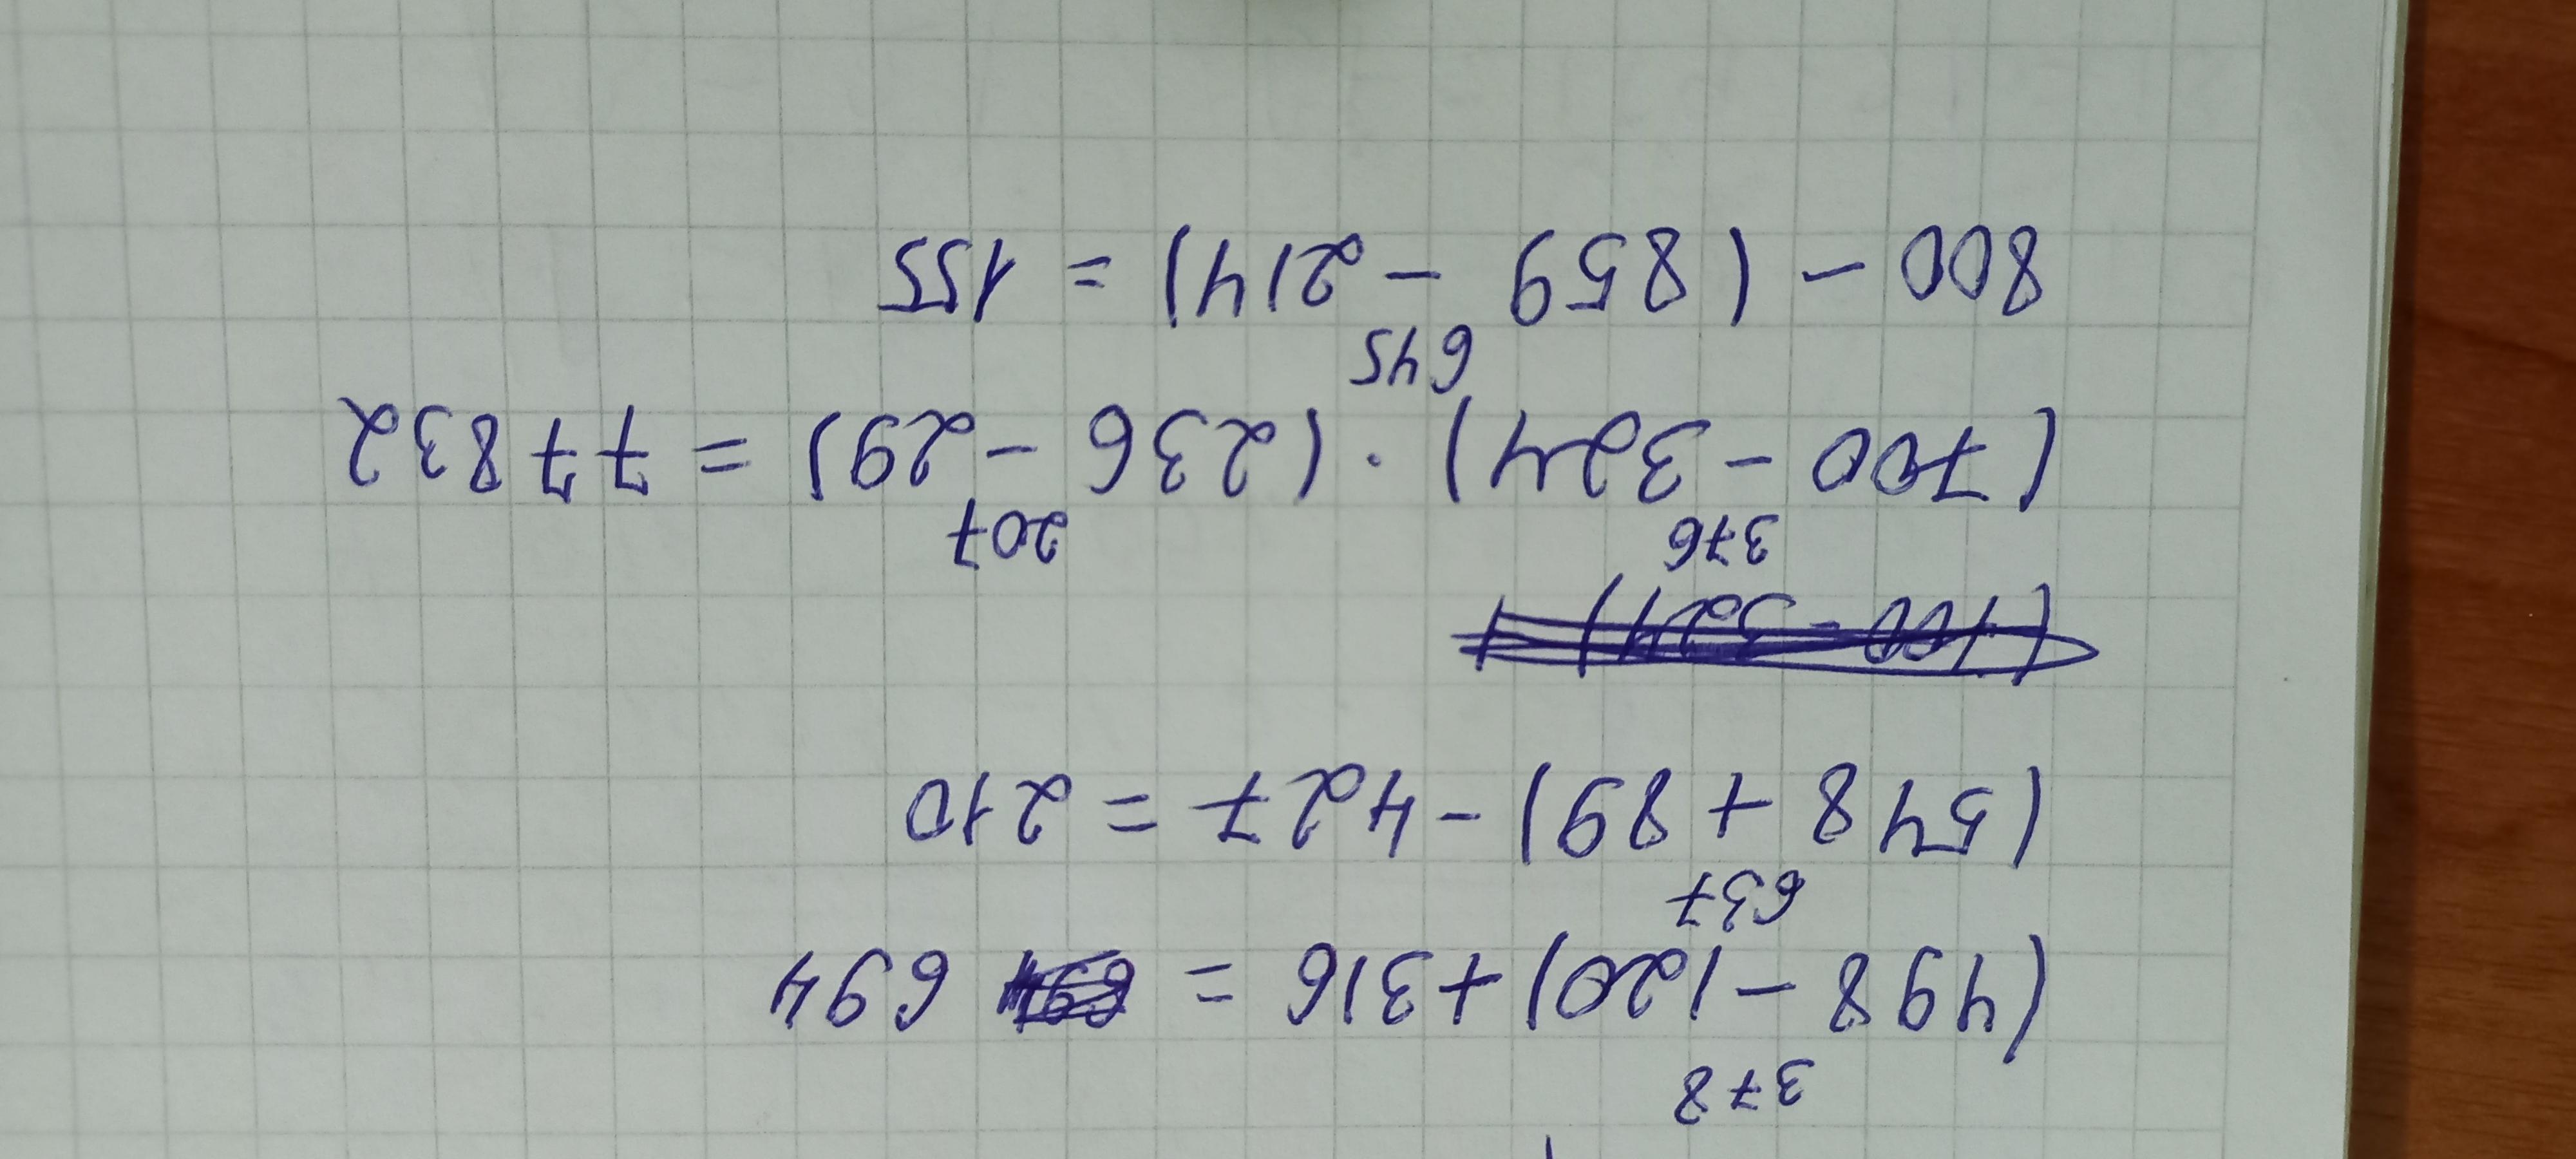 378
(498 - 120) + 316 = 694
637
(548 + 89) - 427 = 210
(700 - 324)
376 207
(700 - 324) · (236 - 29) = 77832
645
800 - (859 - 214) = 155